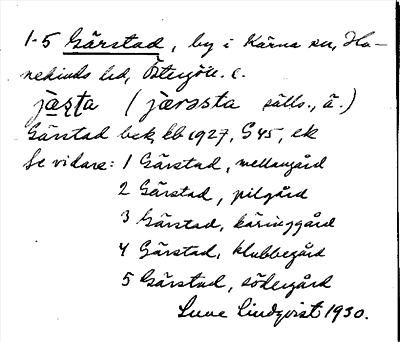 1-5 Gärstad, by i Kärna sn, Ha-
nekinds hd, Östergötl. l.
jä̀ṣṭa (jàrəsta sälls., ä.)
Gärstad bek, kb 1927, G 45, ek
Se vidare: 1 Gärstad, mellangård
2 Gärstad, pilgård
3 Gärstad, käringgård
4 Gärstad, klubbegård
5 Gärstad, södergård
Sune Lindqvist 1930.